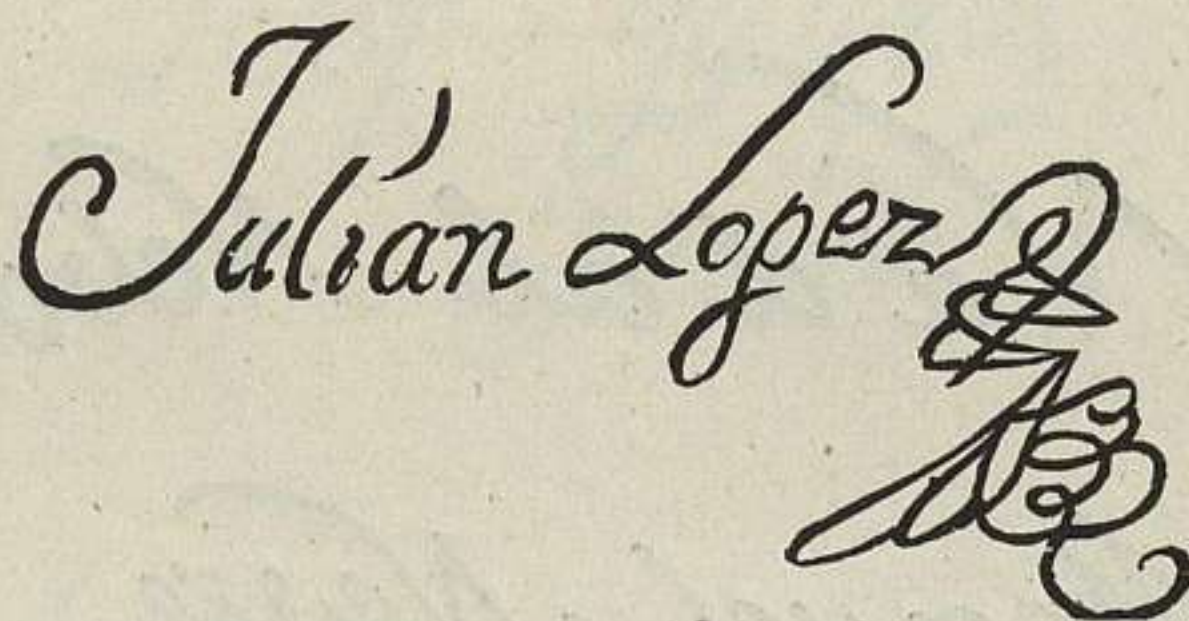 Julián Lopez